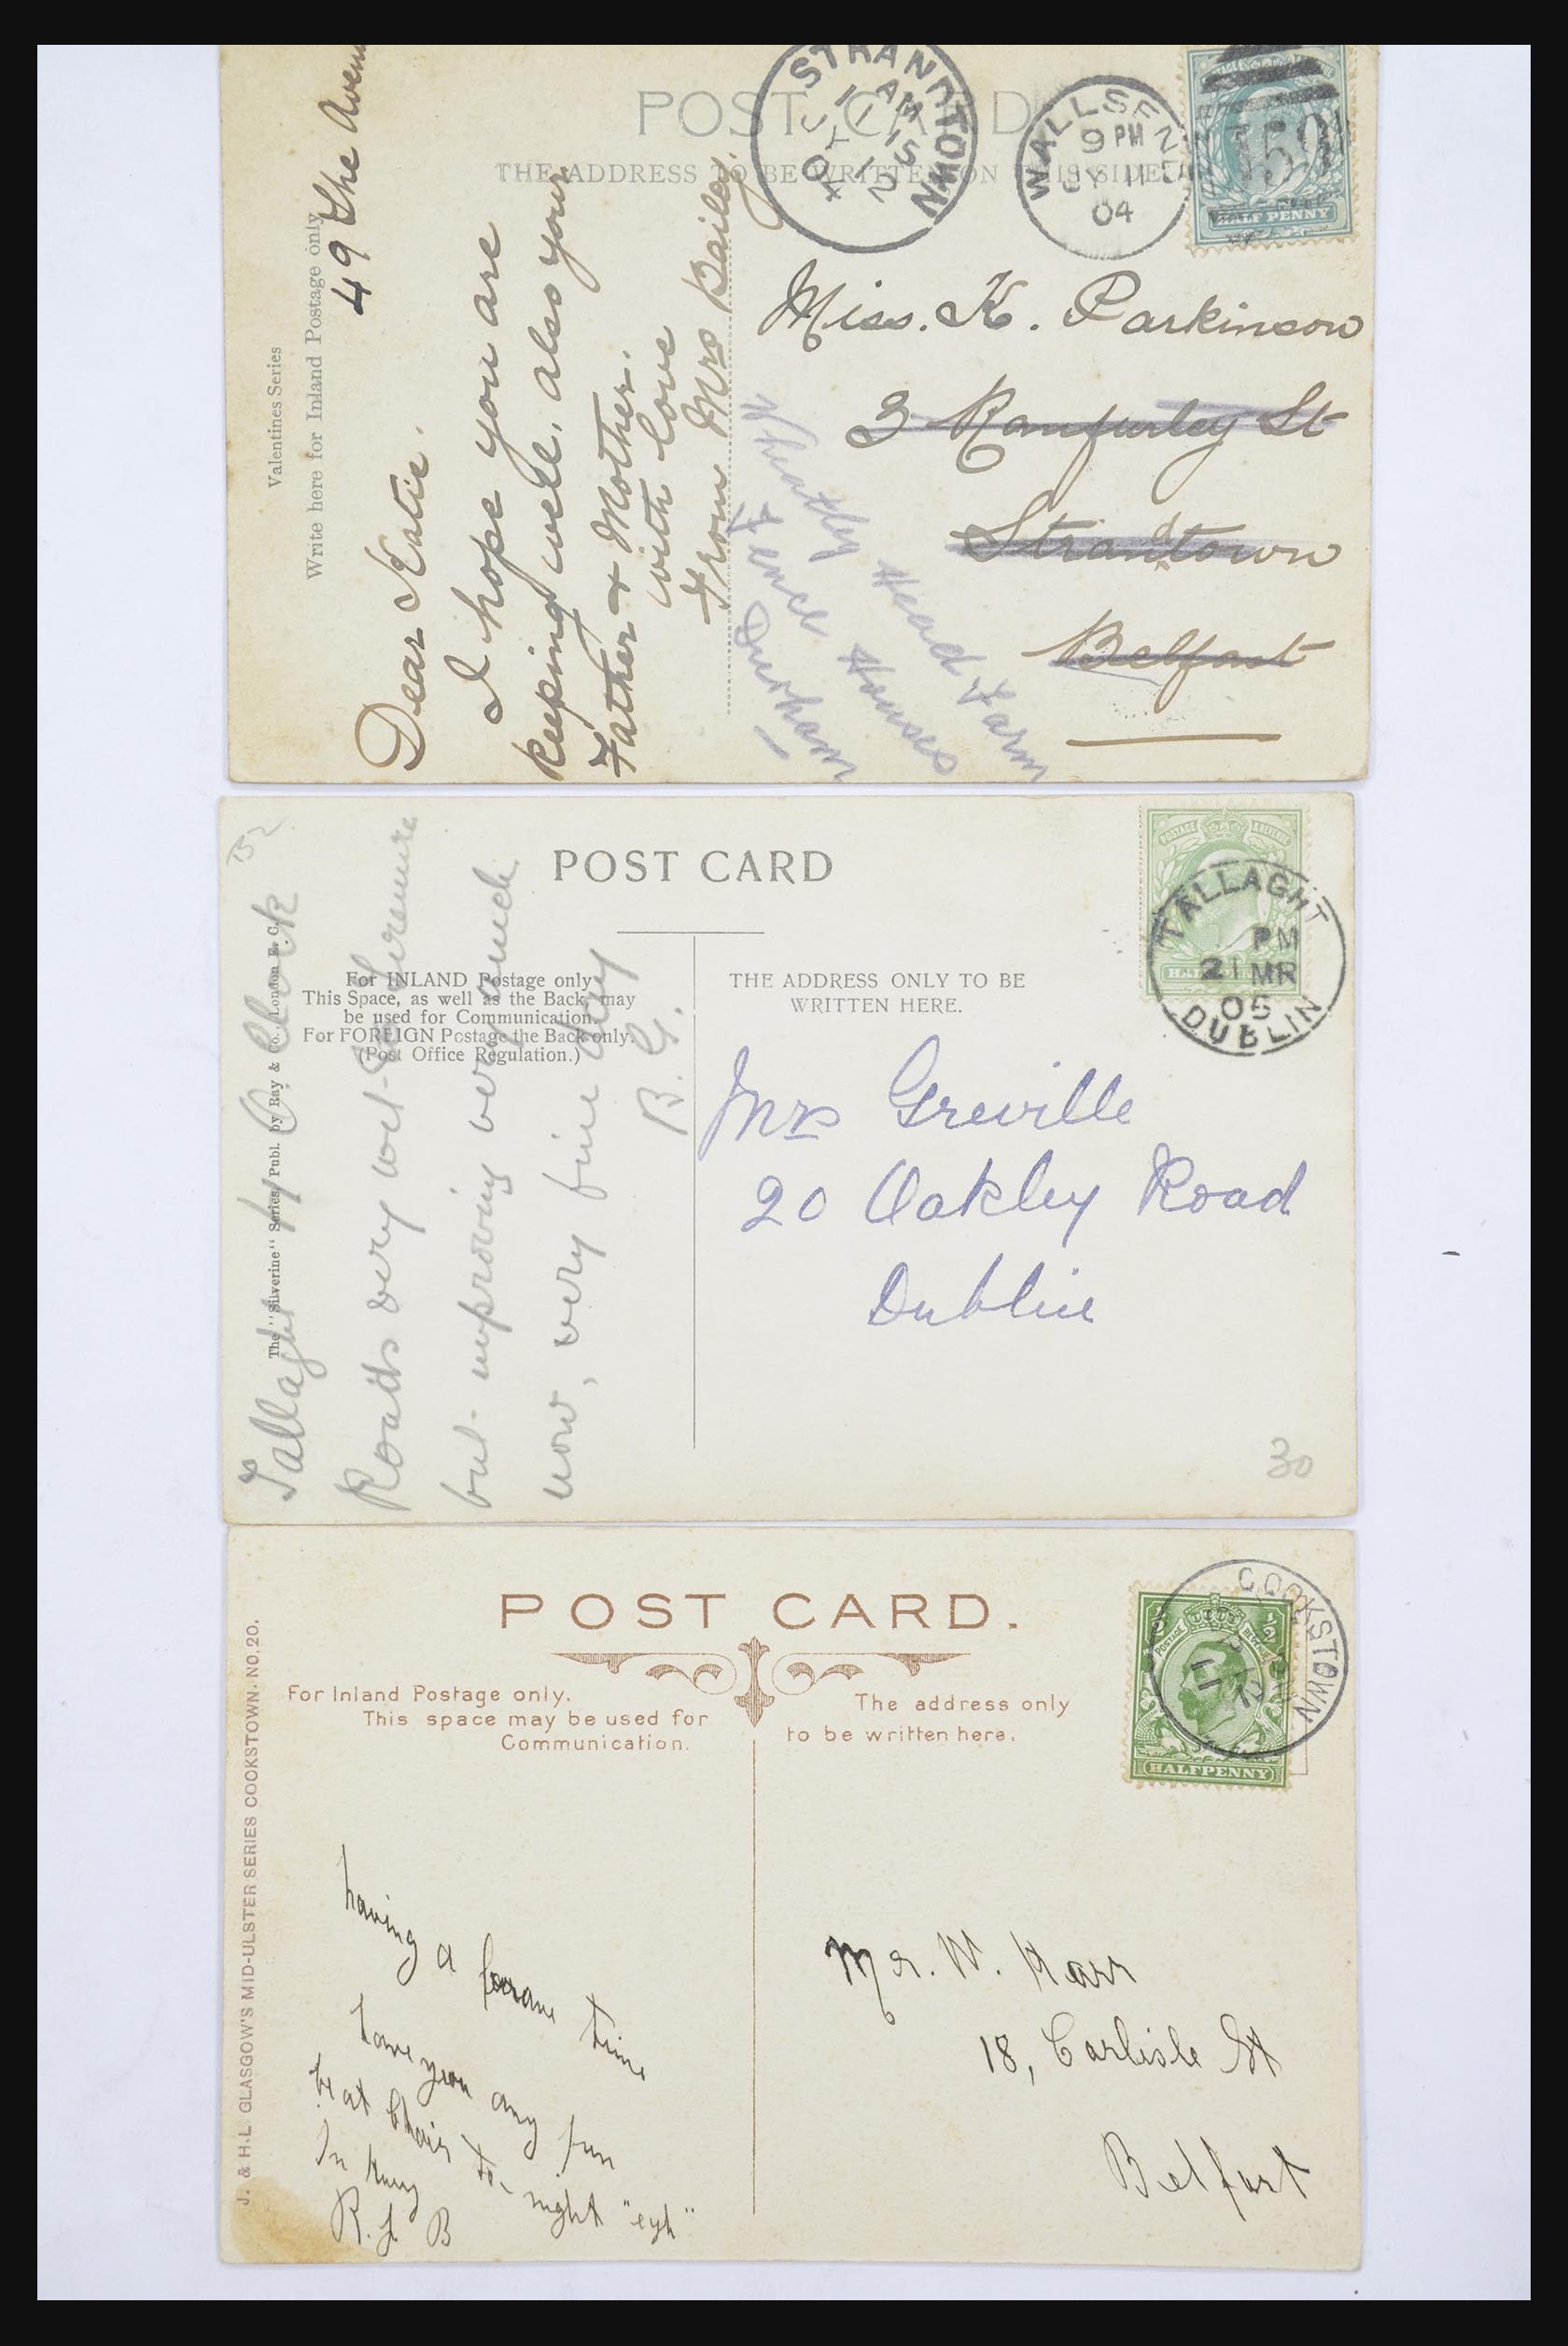 POST CARD
THE ADDRESS TO BE WRITTEN ON THIS SIDE
Valentines Series
Write here for Inland Postage only
STRANDTOWN
AM
11 15
JY 12
04
WALLSEND
9 PM
JY 11
04
159
HALF PENNY
49 The Avenue
Dear Katie.
I hope you are
keeping well, also your
Father & Mother.
with love
From Mrs Bailey.
Miss. K. Parkinson
3 Ranfurley St
Strandtown
Belfast
Head Farm
Fence Houses
Durham
POST CARD
For INLAND Postage only
This Space, as well as the Back, may
be used for Communication.
For FOREIGN Postage the Back only.
(Post Office Regulation.)
THE ADDRESS ONLY TO BE
WRITTEN HERE.
The "Silverine" Series, Publ. by Ray & Co., London E. C.
POSTAGE & REVENUE
TALLAGHT
PM
21 MR
05
DUBLIN
Tallaght O Clock
Roads very wet
but improving very much
now, very fine day
B. G.
Mrs Greville
20 Oakley Road
Dublin
30
POST CARD.
For Inland Postage only.
This space may be used for
Communication.
The address only
to be written here.
J. & H.L. GLASGOW'S MID-ULSTER SERIES COOKSTOWN. NO.20.
COOKSTOWN
12
11
HALFPENNY
having a time
any fun
be at to night
In hurry
R. J. B
Mr. W. Karr
18, Carlisle St
Belfast